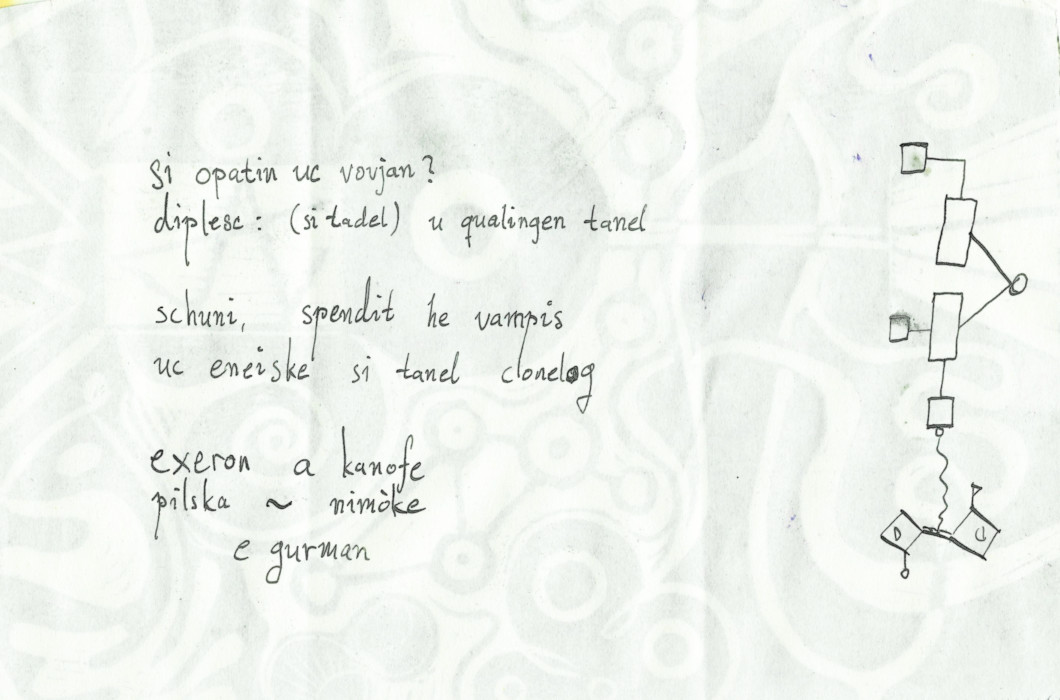 si opatin uc vovjan?
diplesc: (si tadel) u qualingen tanel
schuni, spendit he vampis
uc eneiske si tanel clonelog
exeron a kanofe
pilska ~ nimòke
e gurman